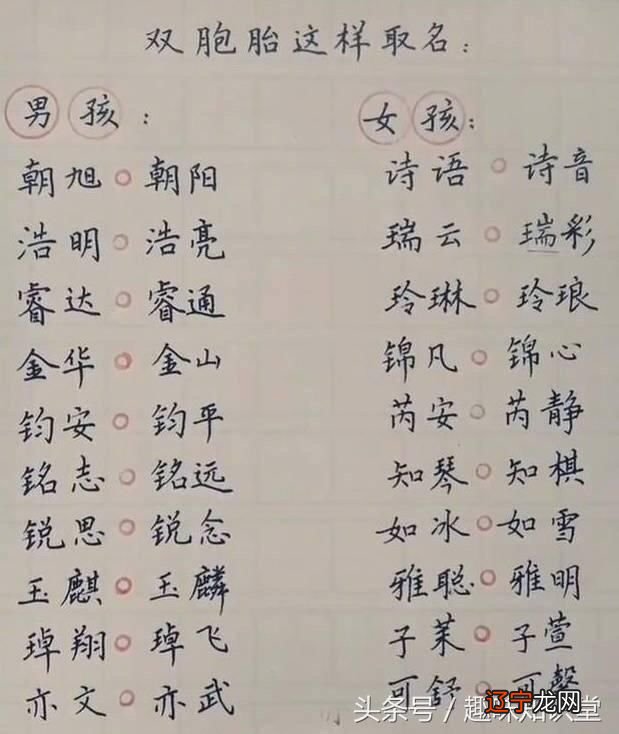 双胞胎这样取名：
男孩：
朝旭○朝阳
浩明○浩亮
睿达○睿通
金华○金山
钧安○钧平
铭志○铭远
锐思○锐念
玉麒○玉麟
琸翔○琸飞
亦文○亦武
女孩：
诗语○诗音
瑞云○瑞彩
玲琳○玲琅
锦凡○锦心
芮安○芮静
知琴○知棋
如冰○如雪
雅聪○雅明
子茉○子萱
可舒○可馨
头条号／趣味知识堂
辽宁龙网